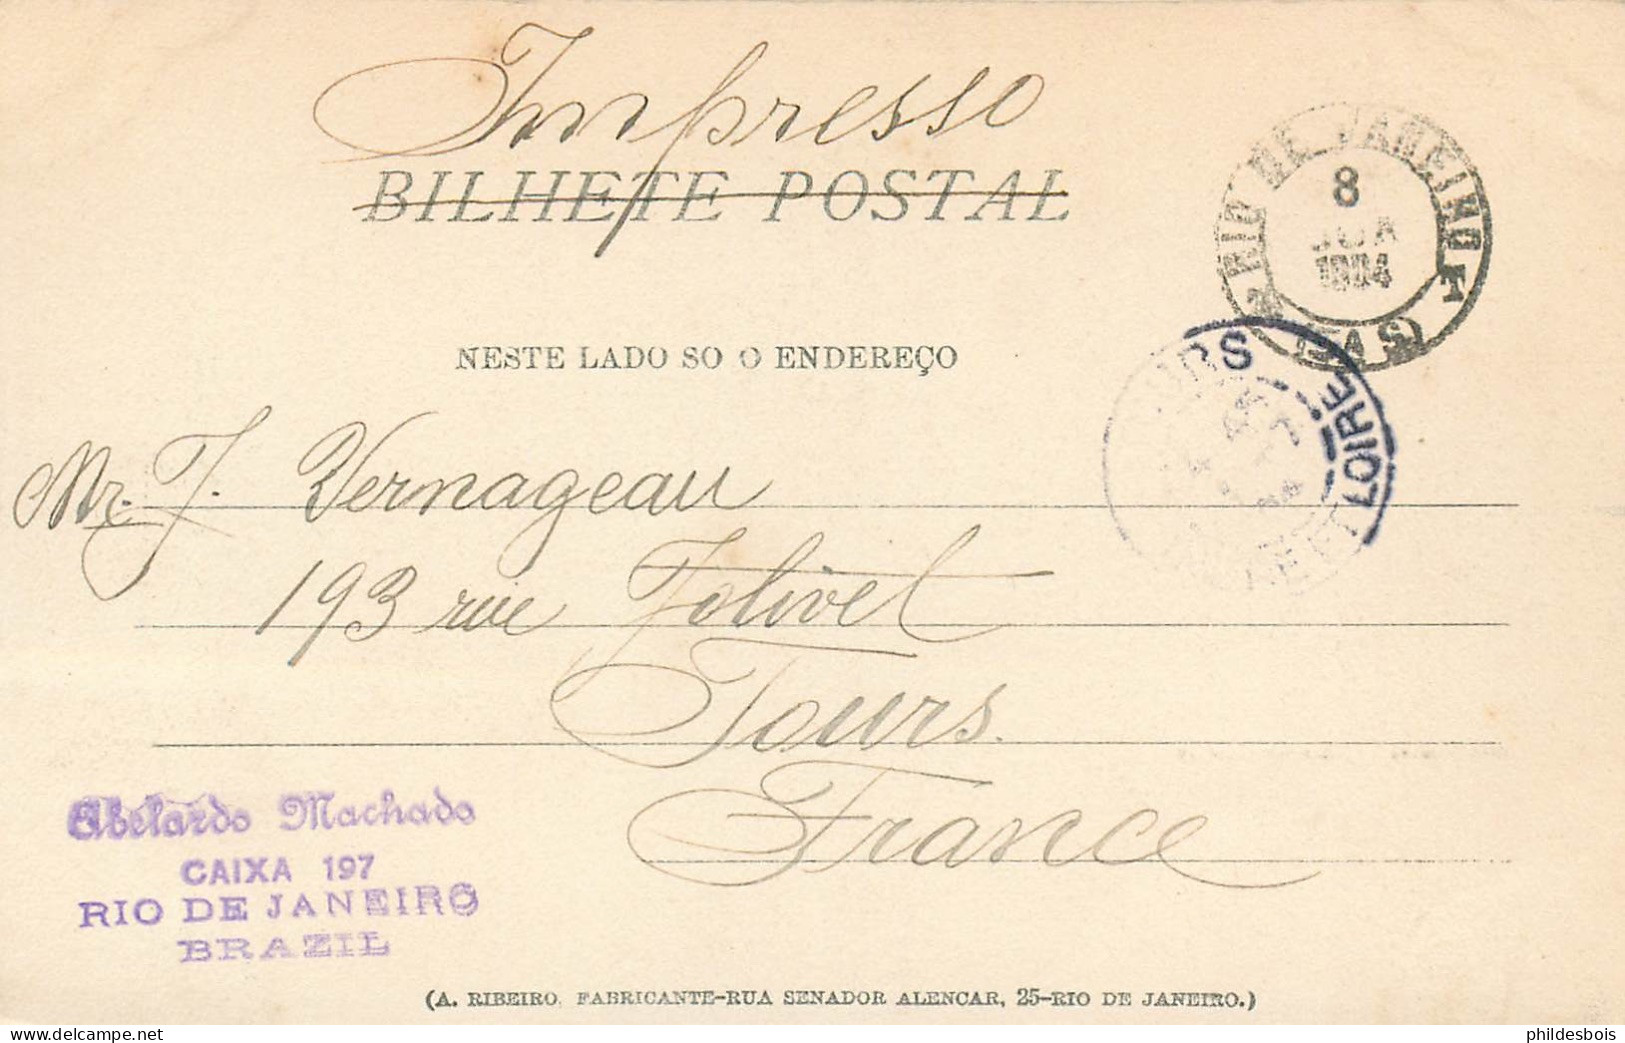 Impresso
BILHETE POSTAL
RIO DE JANEIRO
8
1904
NESTE LADO SO O ENDEREÇO
TOURS
LOIRE
Mr. J. Vernageau
193 rue Jolivet
Tours.
France
Abelardo Machado
CAIXA 197
RIO DE JANEIRO
BRAZIL
(A. RIBEIRO, FABRICANTE-RUA SENADOR ALENCAR, 25-RIO DE JANEIRO.)
phildesbois